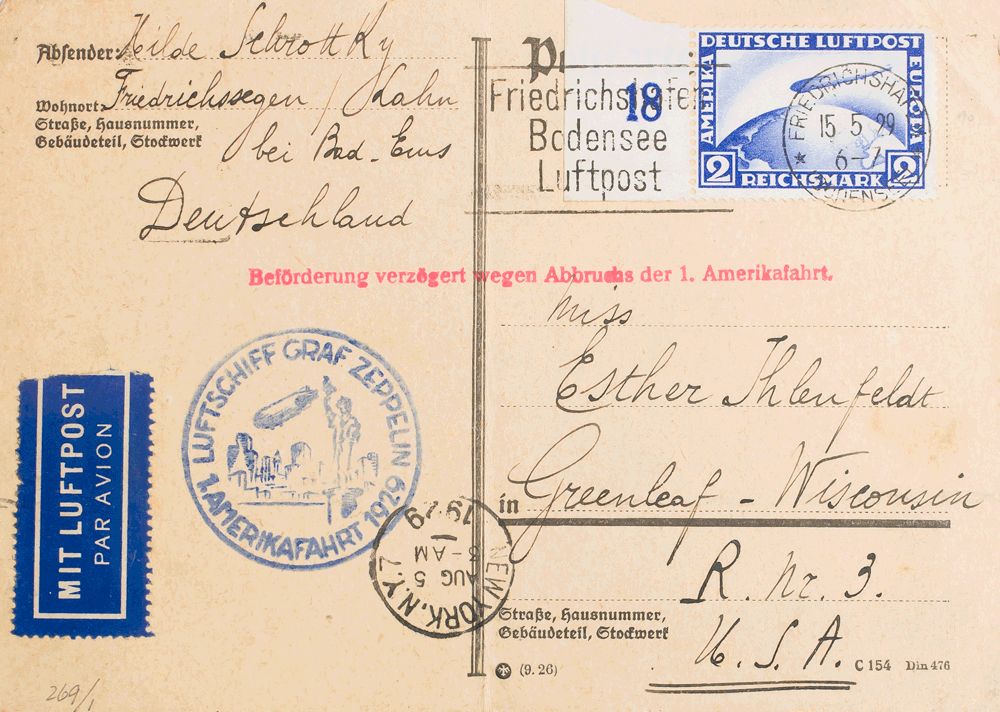 Absender: Hilde Schrottky
Wohnort: Friedrichssegen / Lahn
Straße, Hausnummer,
Gebäudeteil, Stockwerk
bei Bad-Ems
Deutschland
Friedrichshafen
Bodensee
Luftpost
18
DEUTSCHE LUFTPOST
AMERIKA
EUROPA
2 REICHSMARK 2
FRIEDRICHSHAFEN
15 5 29
6-7
BODENSEE
Beförderung verzögert wegen Abbruchs der 1. Amerikafahrt.
Miss
Esther Ihlenfeldt
in Greenleaf - Wisconsin
R. Nr. 3.
U. S. A.
Straße, Hausnummer,
Gebäudeteil, Stockwerk
(9. 26)
C 154 Din 476
LUFTSCHIFF GRAF ZEPPELIN
1. AMERIKAFAHRT 1929
MIT LUFTPOST
PAR AVION
NEW YORK, N.Y. 7
AUG 5
8-AM
1929
269/1